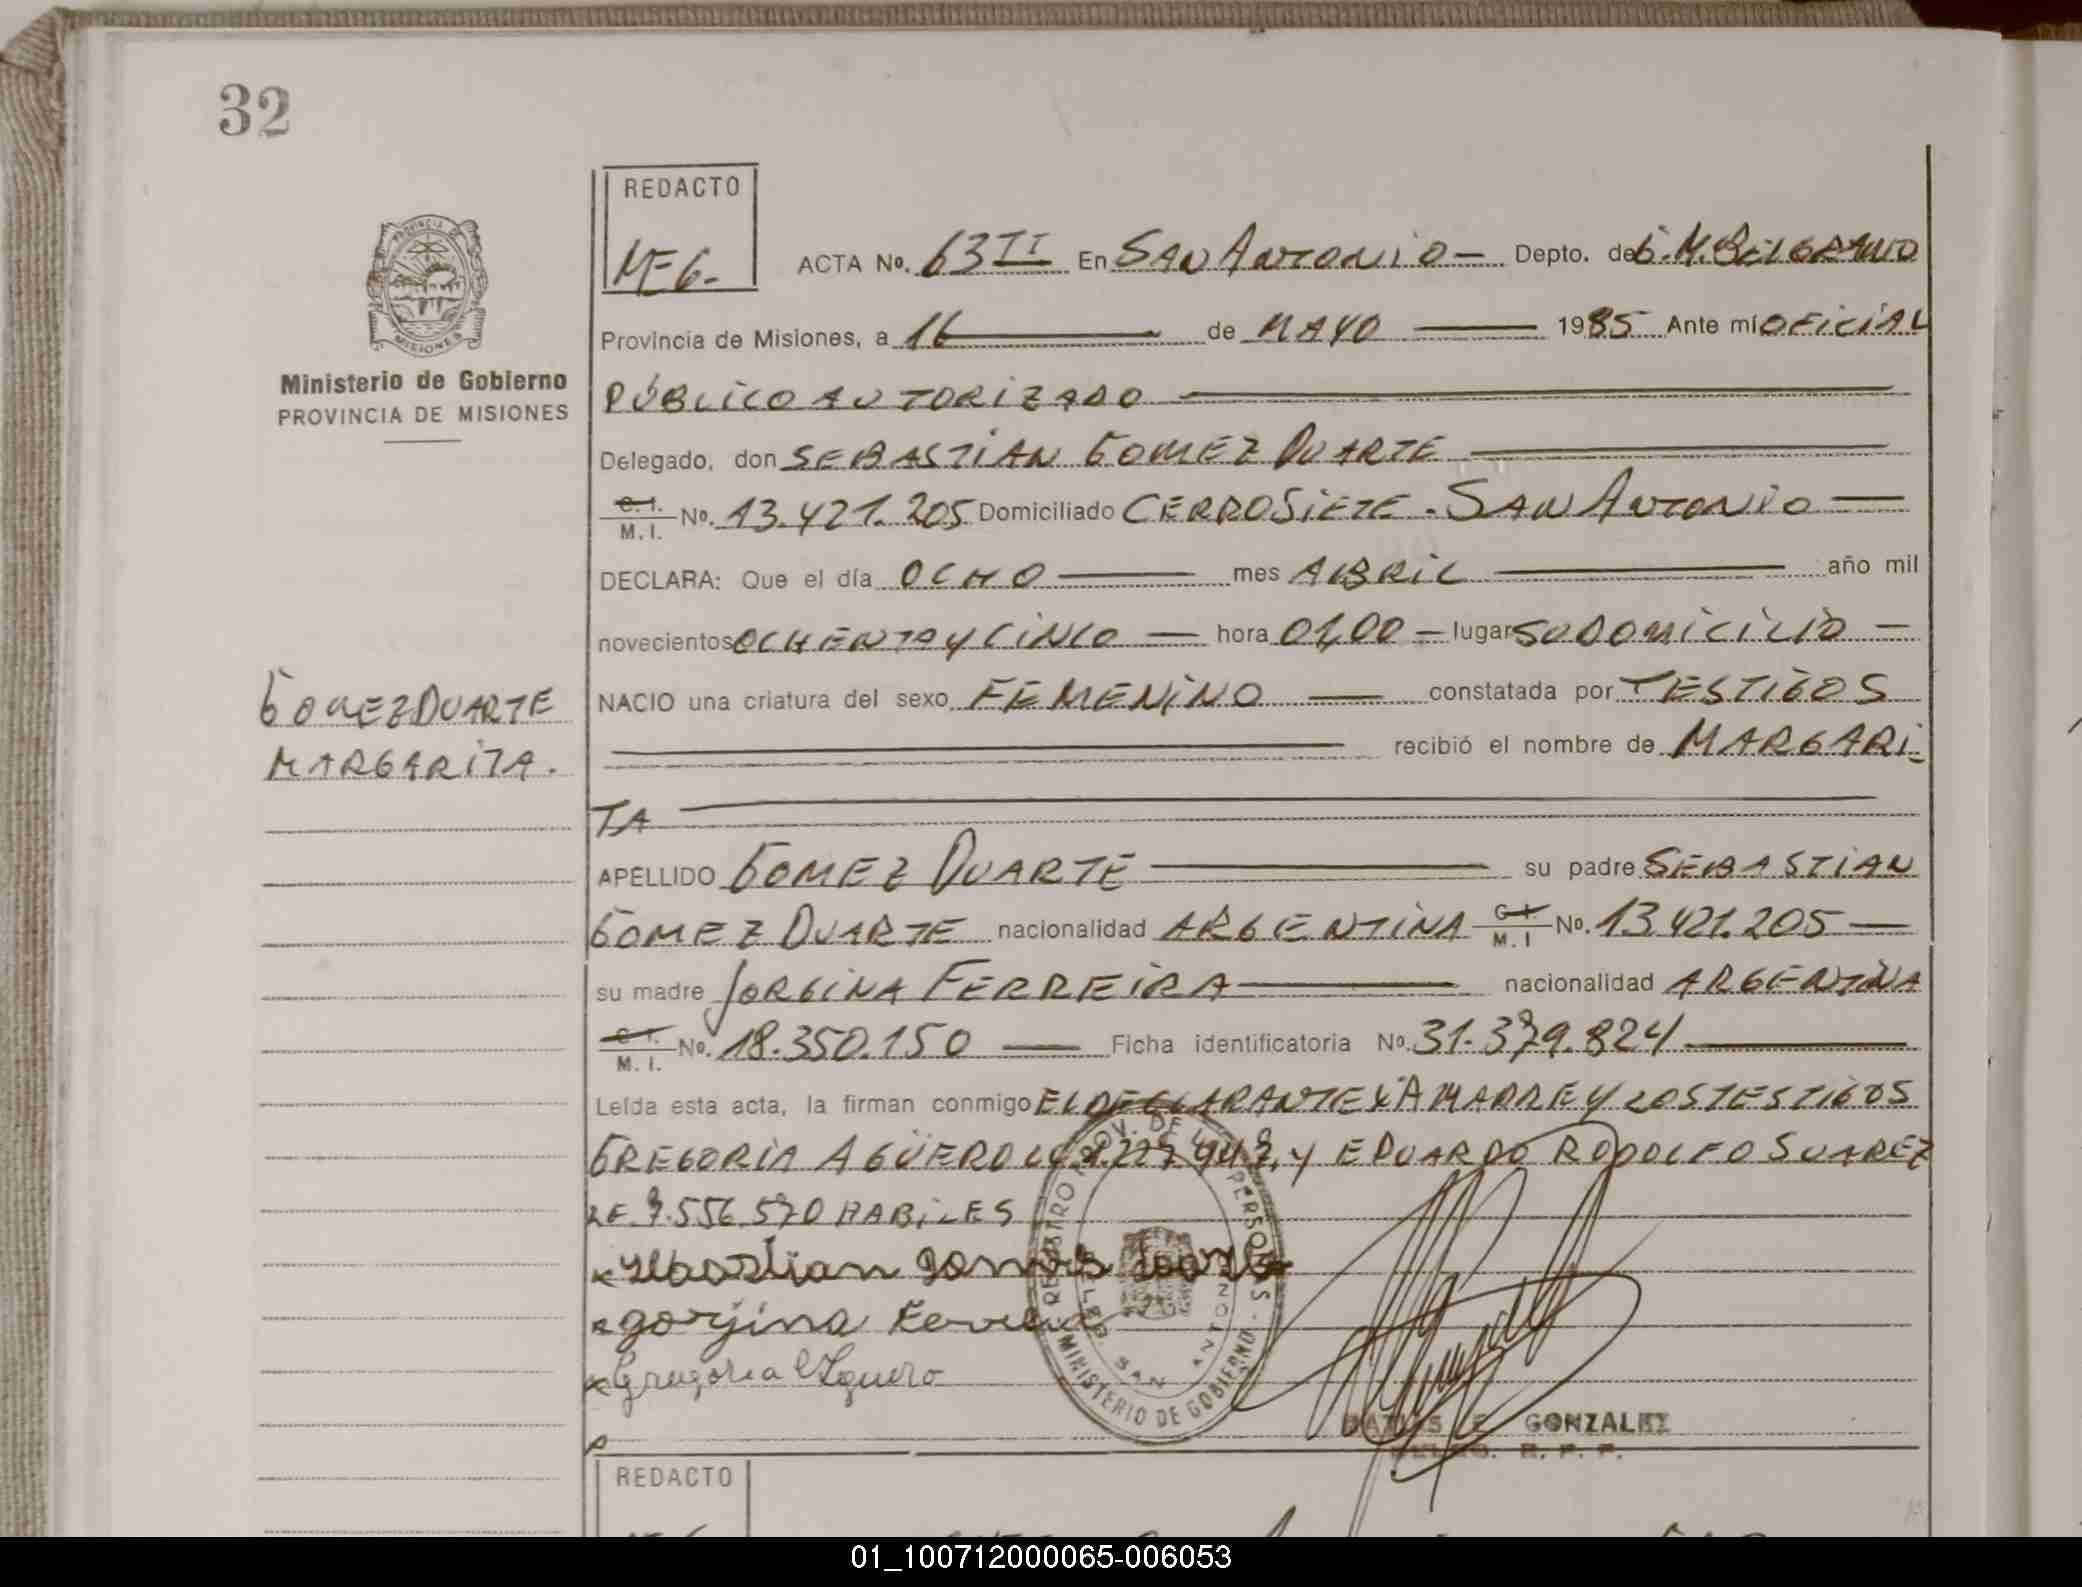 32
REDACTO
ACTA Nº. 63 II En SAN ANTONIO - Depto. de G. M. BELGRANO
Provincia de Misiones, a 16 de MAYO 1985 Ante mí OFICIAL
PÚBLICO AUTORIZADO
Ministerio de Gobierno
PROVINCIA DE MISIONES
Delegado, don SEBASTIAN GOMEZ DUARTE
C. I.
M. I. Nº. 13.421.205 Domiciliado CERRO SIETE - SAN ANTONIO
DECLARA: Que el día OCHO mes ABRIL año mil
novecientos OCHENTA Y CINCO hora 01,00 - lugar SU DOMICILIO -
NACIO una criatura del sexo FEMENINO constatada por TESTIGOS
GOMEZ DUARTE
MARGARITA.
recibió el nombre de MARGARI-
TA
APELLIDO GOMEZ DUARTE su padre SEBASTIAN
GOMEZ DUARTE nacionalidad ARGENTINA C. I. M. I Nº. 13.421.205
su madre JORGINA FERREIRA nacionalidad ARGENTINA
C. I.
M. I. Nº. 18.350.150 Ficha identificatoria Nº. 31.379.824
Leída esta acta, la firman conmigo EL DECLARANTE LA MADRE Y LOS TESTIGOS
GREGORIA AGÜERO Y EDUARDO RODOLFO SUAREZ
LE 7.556.570 HABILES
gorjina
Gregoria Aguero
REGISTRO PROV. DE L PERSONAS - MINISTERIO DE GOBIERNO
SAN ANTONIO
E. GONZALEZ
R. P. P.
REDACTO
01_100712000065-006053